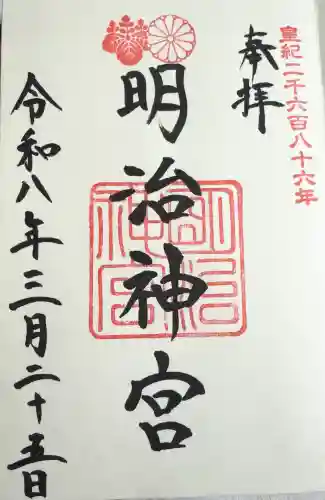 皇紀二千六百八十六年
奉拝
明治神宮
明治神宮
令和八年三月二十五日